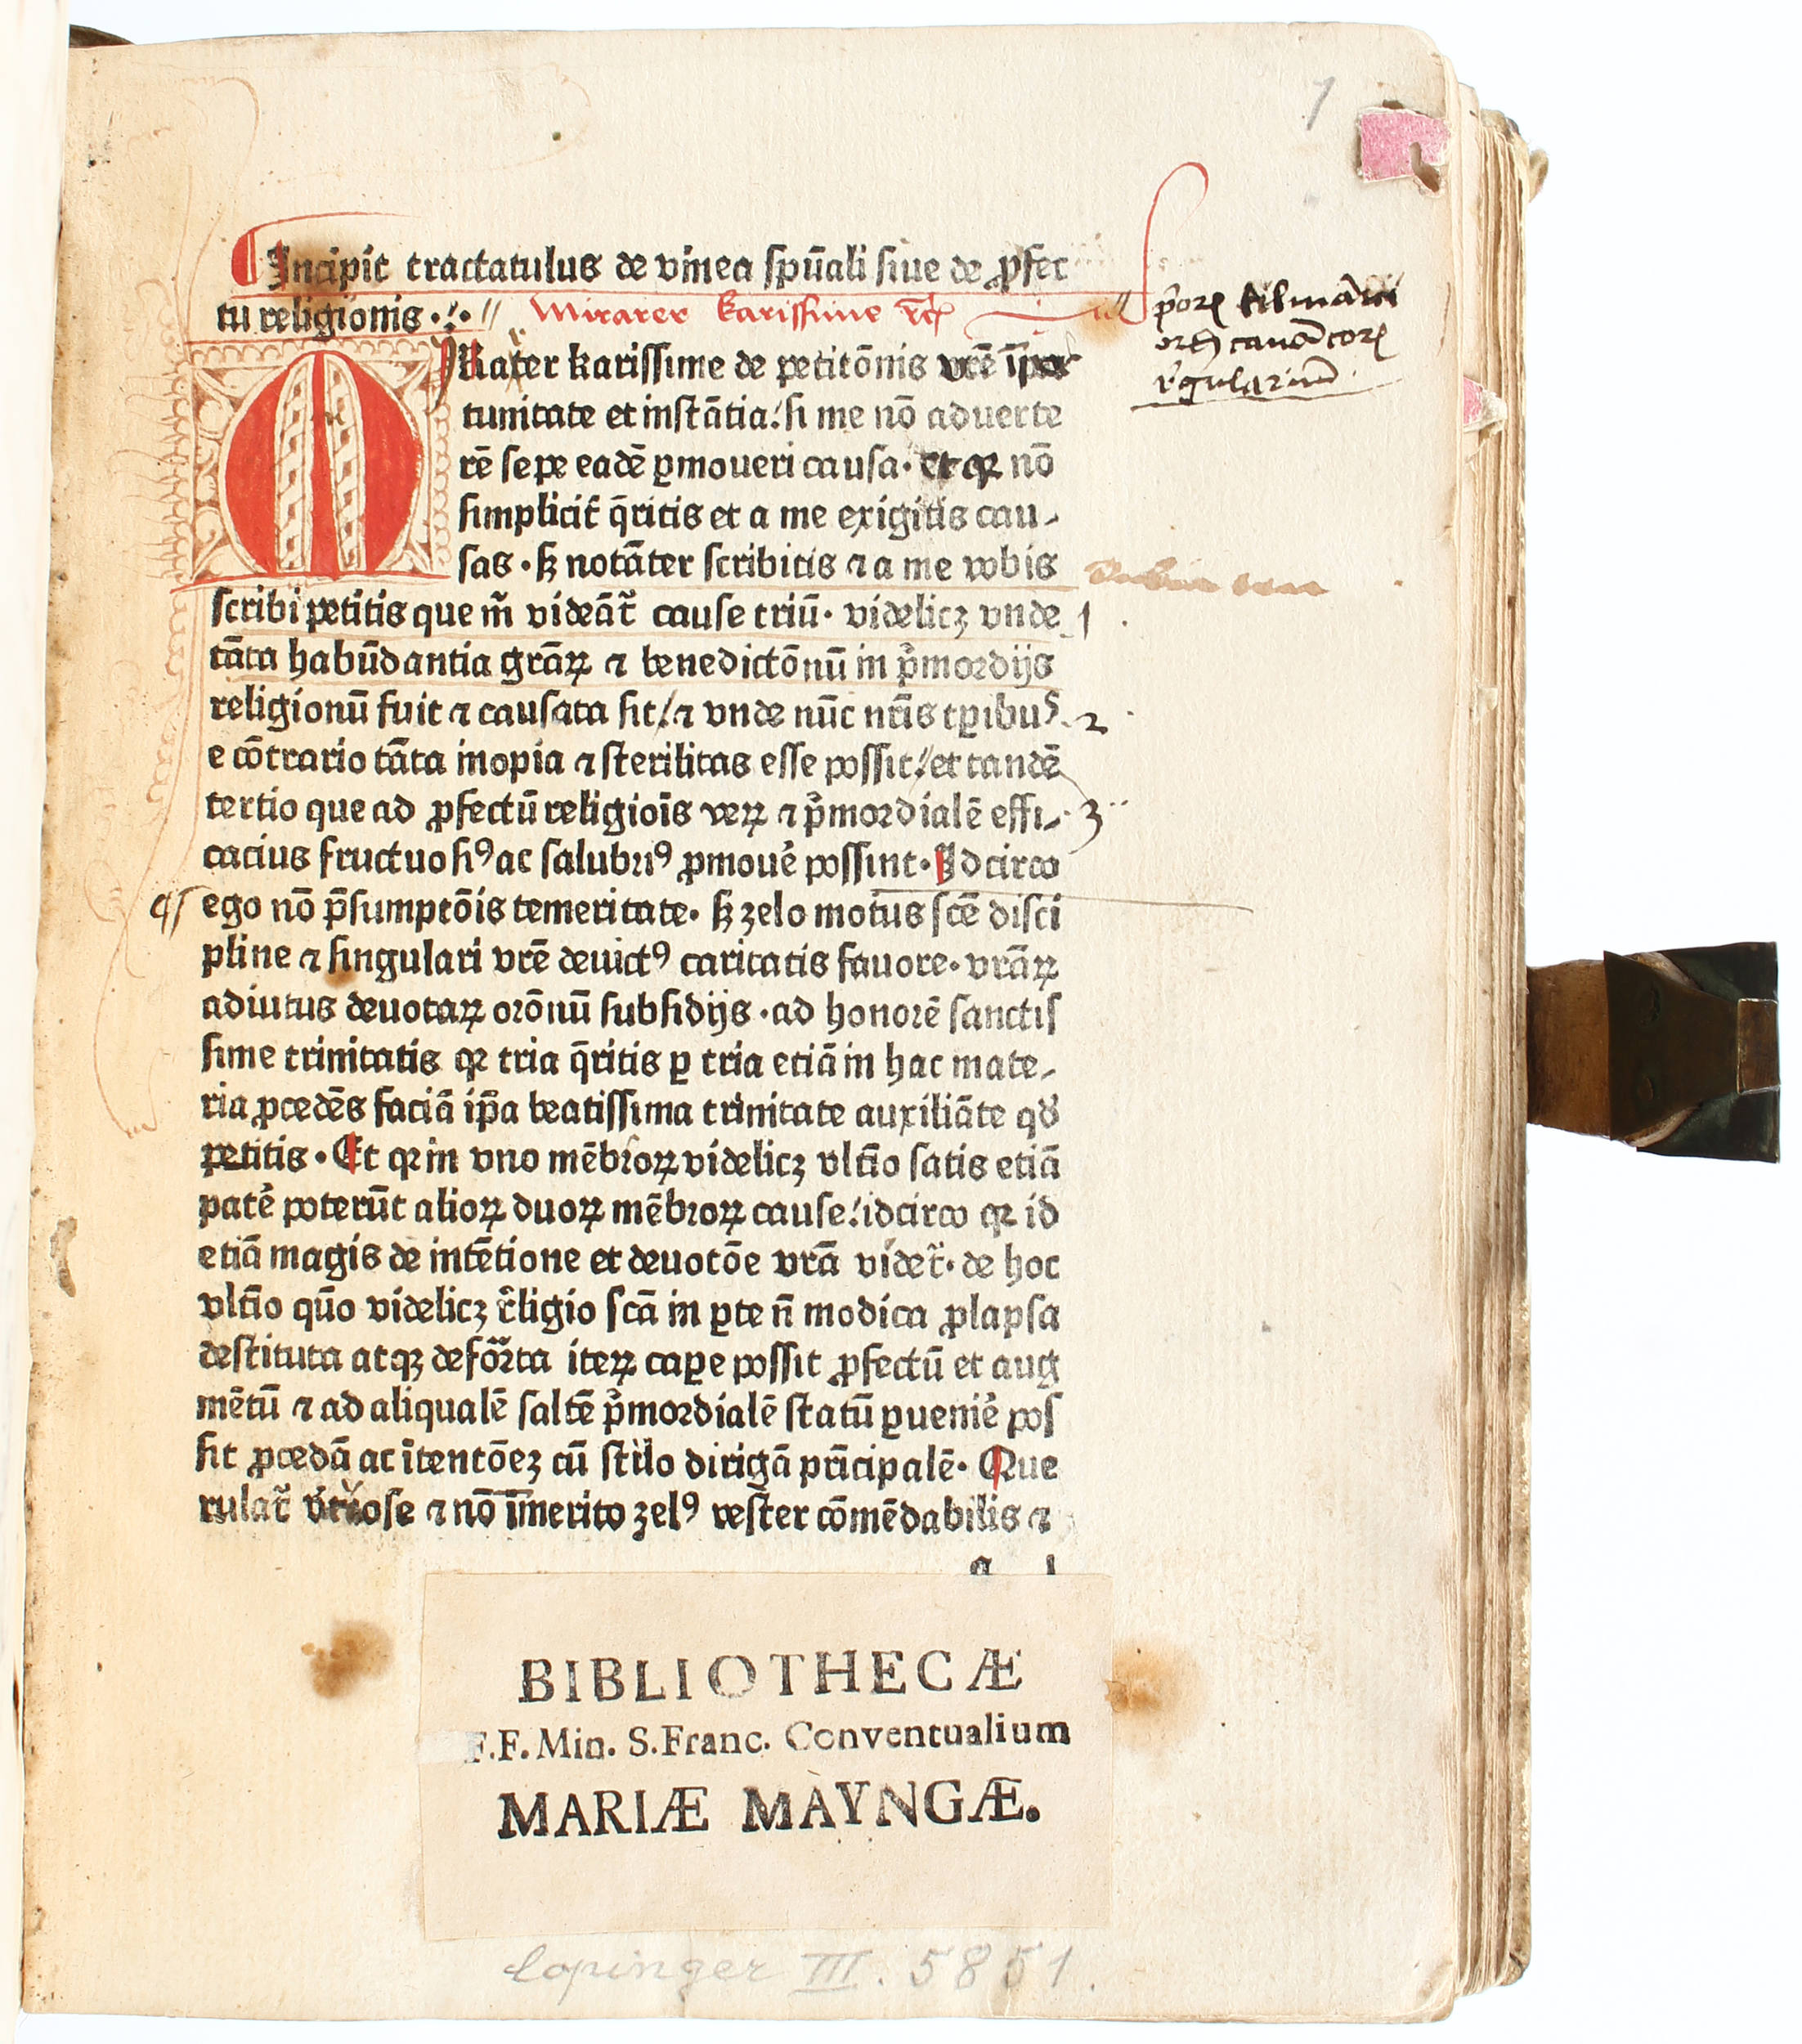 1
Incipit tractatulus de vinea spūali siue de ꝓfec
tu religionis
Mirarer karissime ꝛc̄
priorꝭ
canonicorꝭ
regulariū
MRater karissime de petitōnis vrē īpor
tunitate et instātia: si me nō aduerte
rē sepe eadē ꝑmoueri causa. et qꝛ nō
simplicit̄ q̄ritis et a me exigitis cau-
sas. sꝫ notāter scribitis ⁊ a me vobis
scribi petitis que m̄ videāt̄ cause triū. videlicꝫ vnde 1
tāta habūdantia grāꝝ ⁊ benedictōnū in pⁱmordijs
religionū fuit ⁊ causata sit: ⁊ vnde nūc nr̄is tꝑibus 2
e cōtrario tāta inopia ⁊ sterilitas esse possit: et tandē
tertio que ad ꝓfectū religiōis veꝝ ⁊ pⁱmordialē effi- 3
cacius fructuosiꝰ ac salubriꝰ ꝓmouē possint. Idcirco
ego nō p̄sumptōis temeritate. sꝫ zelo motus scē disci
pline ⁊ singulari vrē deuictꝰ caritatis fauore. vrāꝝ
adiutus deuotaꝝ orōnū subsidijs. ad honorē sanctis
sime trinitatis qꝛ tria q̄ritis ꝑ tria etiā in hac mate-
ria ꝓcedēs faciā ip̄a beatissima trinitate auxiliāte qd̄
petitis. Et qꝛ in vno mēbroꝝ videlicꝫ vltīo satis etiā
patē poterūt alioꝝ duoꝝ mēbroꝝ cause: idcirco qꝛ id
etiā magis de intētione et deuotōe vrā videt̄. de hoc
vltīo quō videlicꝫ r̄ligio scā in ꝑte n̄ modica ꝓlapsa
destituta atqꝫ defōrta iteꝝ caꝑe possit ꝓfectū et aug
mētū ⁊ ad aliqualē saltē pⁱmordialē statū ꝑueniē pos
sit ꝓcedā ac ītentōeꝫ cū stilo dirigā pn̄cipalē. Que
rulat̄ v̄tuose ⁊ nō īmerito zelꝰ vester cōmēdabilis ⁊
a 1
BIBLIOTHECÆ
F.F. Min. S. Franc. Conventualium
MARIÆ MAYNGÆ.
Copinger III. 5851.